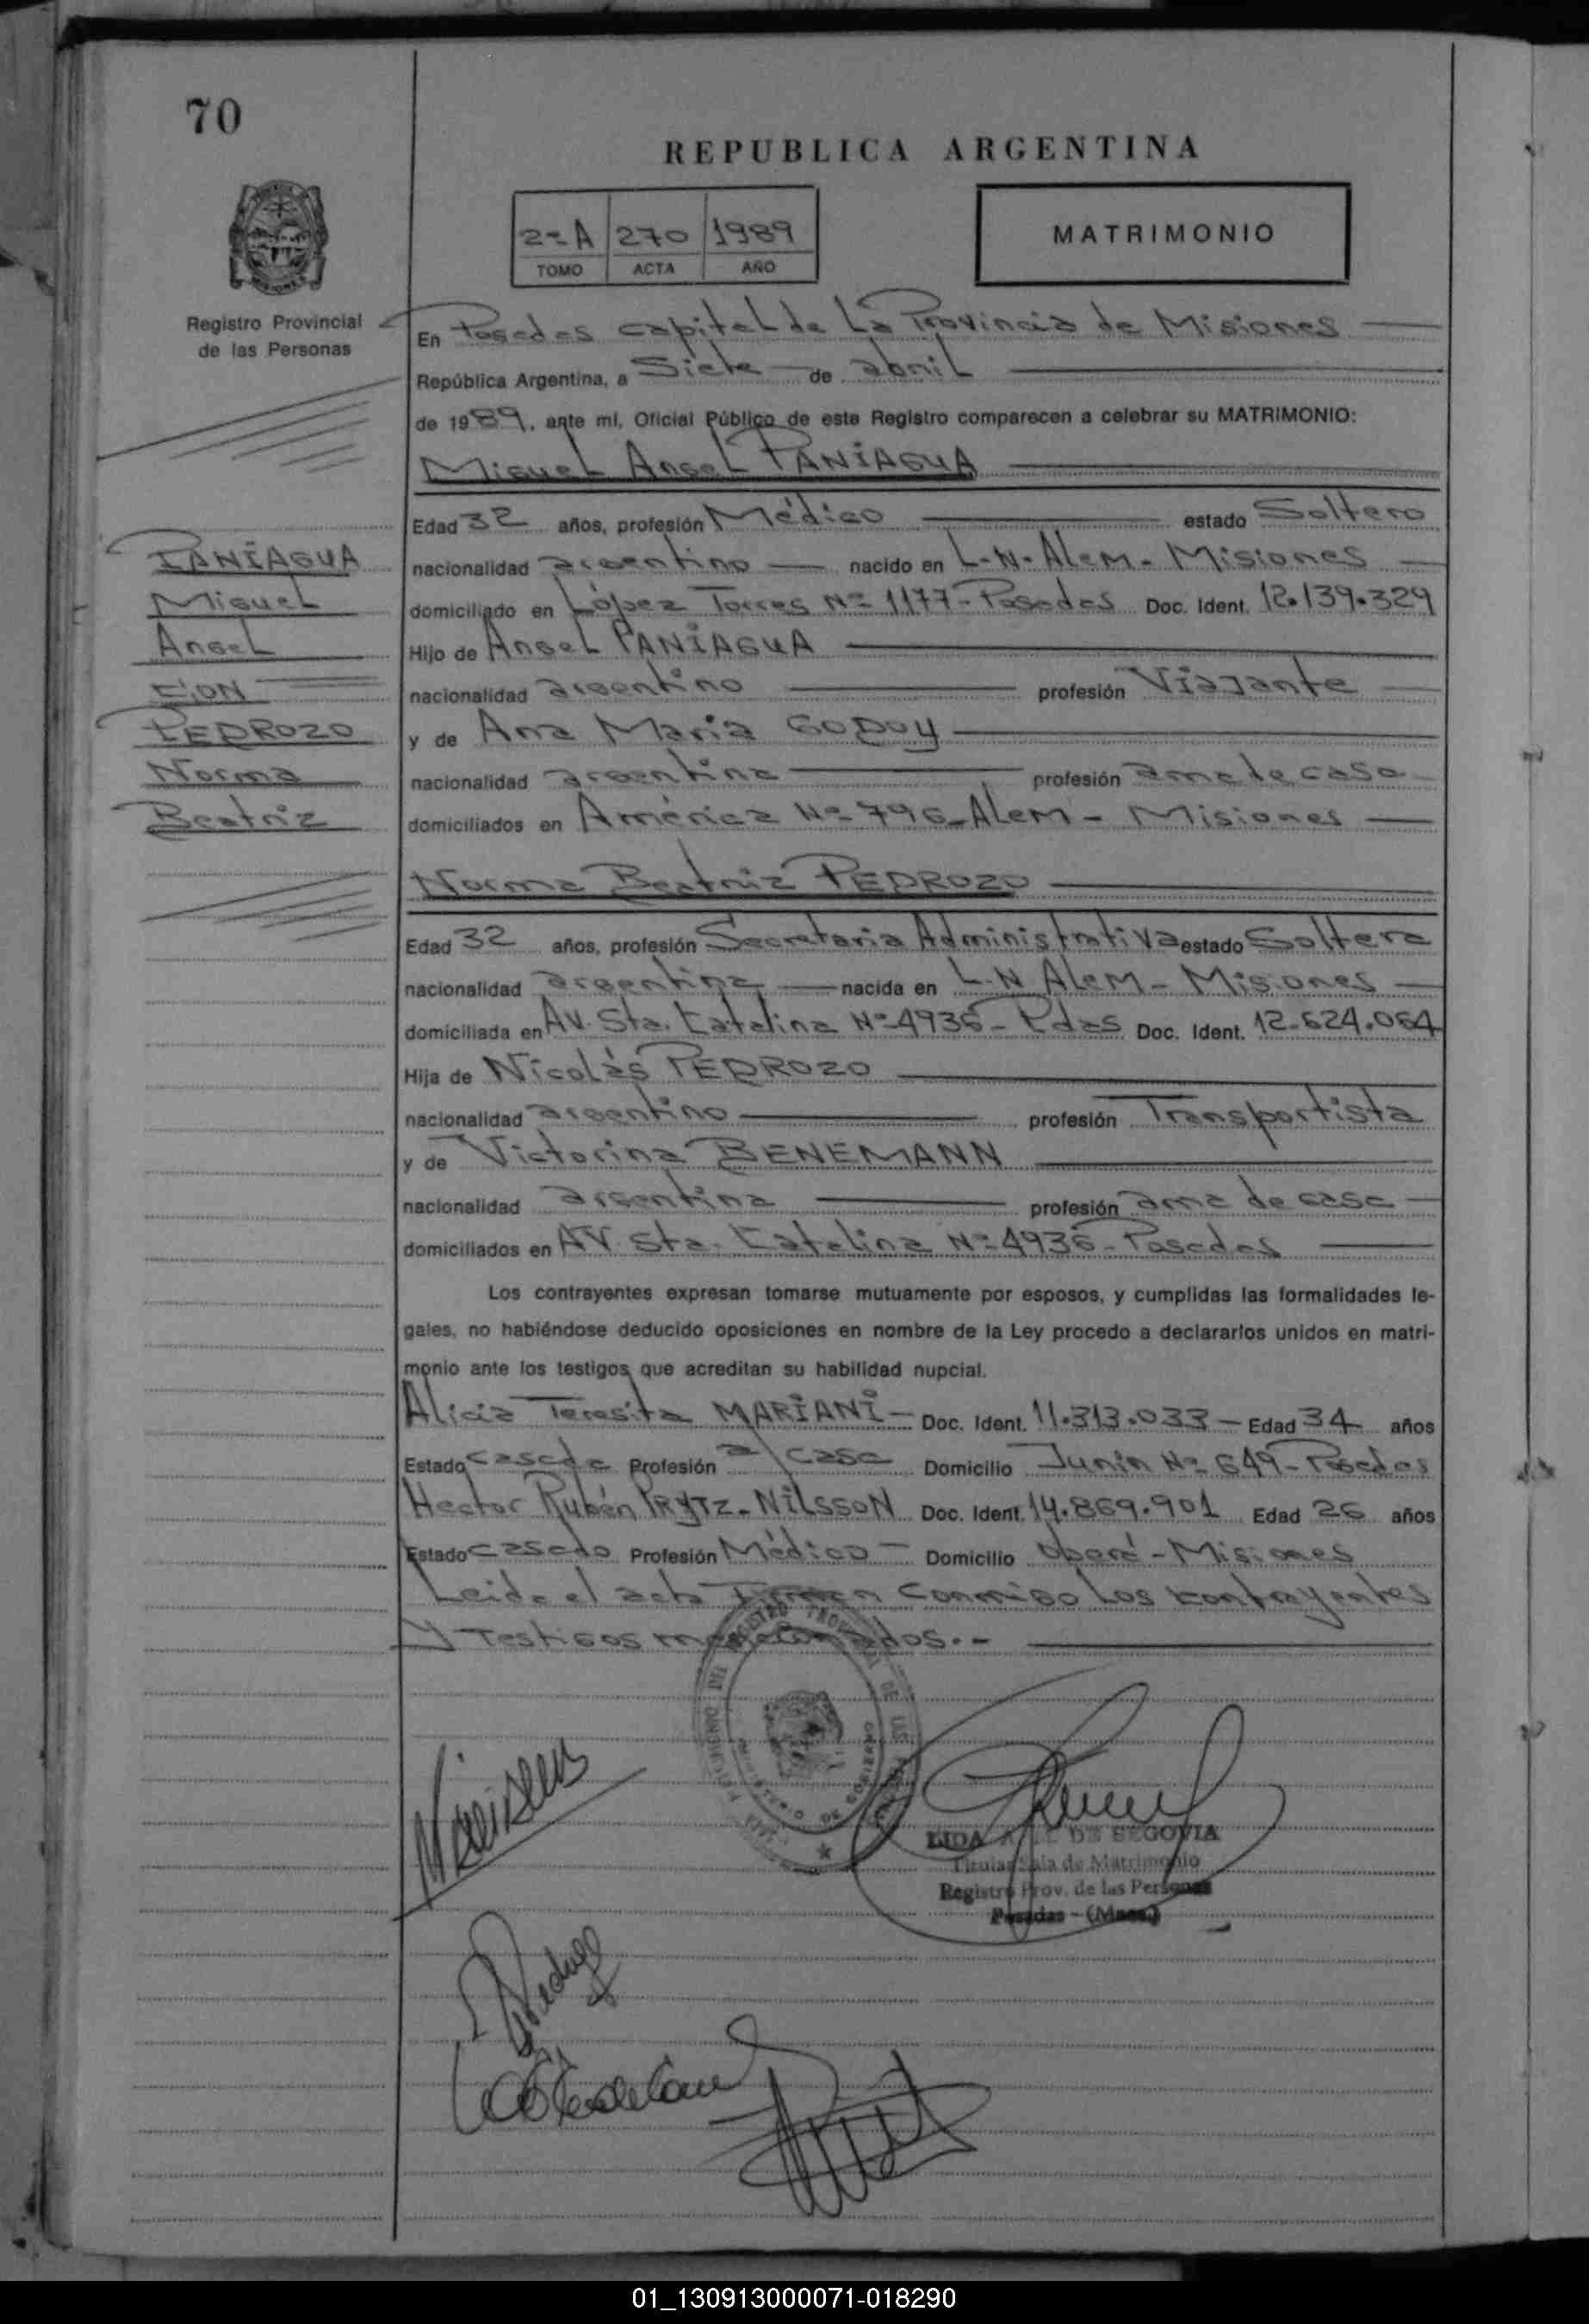 70
REPUBLICA ARGENTINA
2ºA 270 1989
TOMO ACTA AÑO
MATRIMONIO
Registro Provincial
de las Personas
En Posadas capital de La Provincia de Misiones
República Argentina, a Siete de abril
de 1989, ante mi, Oficial Público de este Registro comparecen a celebrar su MATRIMONIO:
Miguel Angel PANIAGUA
Edad 32 años, profesión Médico estado Soltero
nacionalidad argentino nacido en L.N. Alem - Misiones
domiciliado en López Torres Nº 1177 - Posadas Doc. Ident. 12.139.329
Hijo de Angel PANIAGUA
nacionalidad argentino profesión Viajante
y de Ana Maria GODOY
nacionalidad argentina profesión ama de casa
domiciliados en América Nº 796 - Alem - Misiones
PANIAGUA
Miguel
Angel
CON
PEDROZO
Norma
Beatriz
Norma Beatriz PEDROZO
Edad 32 años, profesión Secretaria Administrativa estado Soltera
nacionalidad argentina nacida en L.N Alem - Misiones
domiciliada en AV. Sta. Catalina Nº 4936 - Pdas Doc. Ident. 12.624.064
Hija de Nicolás PEDROZO
nacionalidad argentino profesión Transportista
y de Victorina BENEMANN
nacionalidad argentina profesión ama de casa
domiciliados en AV. Sta. Catalina Nº 4936 - Posadas
Los contrayentes expresan tomarse mutuamente por esposos, y cumplidas las formalidades le-
gales, no habiéndose deducido oposiciones en nombre de la Ley procedo a declararlos unidos en matri-
monio ante los testigos que acreditan su habilidad nupcial.
Alicia Teresita MARIANI - Doc. Ident. 11.313.033 - Edad 34 años
Estado casada Profesión a/casa Domicilio Junin Nº 649 - Posadas
Hector Rubén PRYTZ - NILSSON Doc. Ident. 14.869.901 Edad 26 años
Estado casado Profesión Médico - Domicilio Oberá - Misiones
Leida el acta Firman conmigo Los contrayentes
y Testigos mencionados.-
LIDA DE SEGOVIA
Titular Sala de Matrimonio
Registro Prov. de las Personas
Posadas - (Mnes.)
01_130913000071-018290